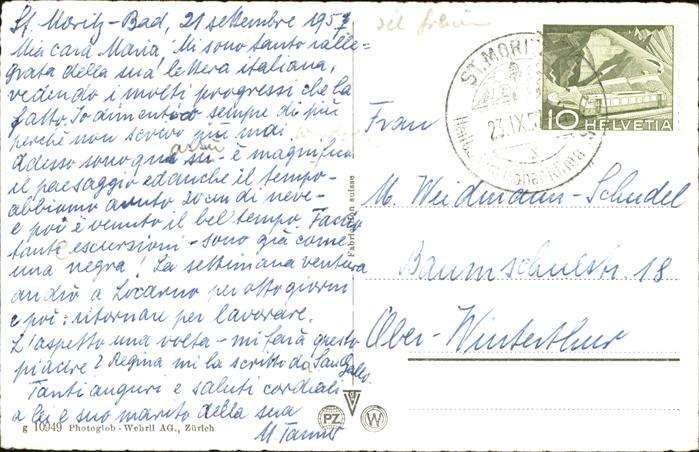 St. Moritz-Bad, 21 settembre 1957
Mia cara Maria! Mi sono tanto ralle=
grata della sua lettera italiana,
vedendo i molti progressi che la
fatto. Io dimentico sempre di più
perchè non scrivo più mai.
Adesso sono qua su - è magnifico
il paesaggio ed anche il tempo -
abbiamo avuto 20 cm di neve -
e poi è venuto il bel tempo. Faccio
tante escursioni - sono già come
una negra! La settimana ventura
andrò a Locarno per otto giorni
e poi: ritornare per lavorare.
L'aspetto una volta - mi farà questo
piacere? Regina mi la scritto da San Gallo
Tanti auguri e saluti cordiali
a lei e suo marito della sua
M Tanner
g 10949 Photoglob-Wehrli AG., Zürich
Fabrication suisse
PZ
W
ST. MORITZ
23.IX.5
10 HELVETIA
Frau
M. Weidmann-Schudel
Baumschulestr. 18
Ober-Winterthur